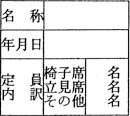 名称
年月日
定員内訳
椅子席 名
立見席 名
その他 名